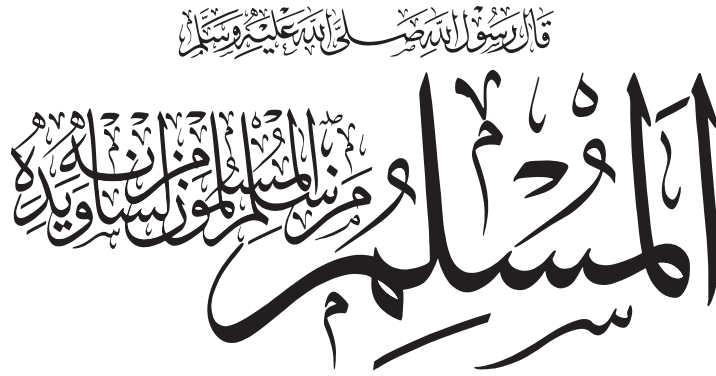 قَالَ رَسُوْلُ اللّٰهِ صَلَّى اللّٰهُ عَلَيْهِ وَسَلَّمَ
اَلْمُسْلِمُ مَنْ سَلِمَ الْمُسْلِمُوْنَ مِنْ لِسَانِهٖ وَيَدِهٖ